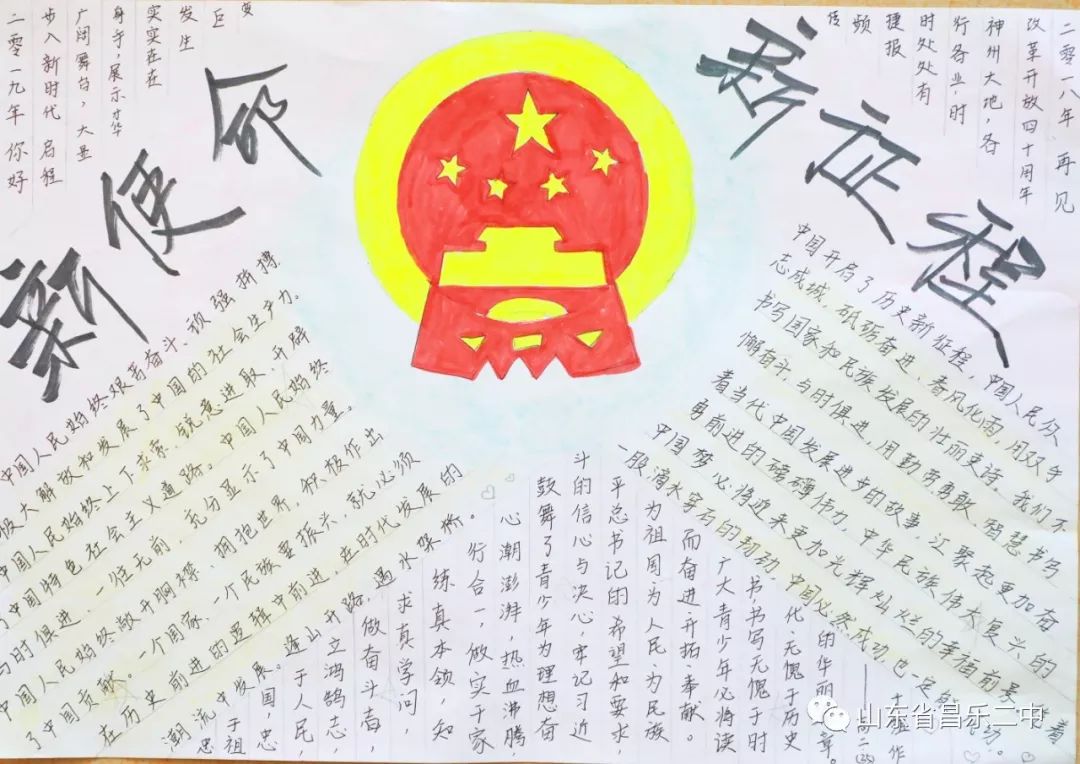 二零一八年 再见
改革开放四十周年
神州大地,各
行各业,时
时处处有
捷报
频
传
新征程
新使命
二零一九年 你好
步入新时代 启程
广阔舞台,大显
身手,展示才华
实实在在
发生
巨
变
中国人民始终艰苦奋斗、顽强拼搏
极大解放和发展了中国的社会生产力。
中国人民始终上下求索、锐意进取,开辟
了中国特色社会主义道路。中国人民始终
与时俱进、一往无前,充分显示了中国力量。
中国人民始终敞开胸襟、拥抱世界,积极作出
了中国贡献。一个国家、一个民族要振兴,就必须
在历史前进的逻辑中前进,在时代发展的
潮流中发展。逢山开路,遇水架桥
忠
于祖
国,忠
于人民,
立鸿鹄志,
做奋斗者,
求真学问,
练真本领,知
行合一,做实干家。
心潮澎湃,热血沸腾
鼓舞了青少年为理想奋
斗的信心与决心,牢记习近
平总书记的希望和要求,
为祖国、为人民、为民族
而奋进开拓、奉献。
广大青少年必将读
书书写无愧于时
代、无愧于历史
的华丽篇章。
中国开启了历史新征程,中国人民众
志成城,砥砺奋进,春风化雨,用双手
书写国家和民族发展的壮丽史诗。我们不
懈奋斗、与时俱进,用勤劳、勇敢、智慧书写
着当代中国发展进步的故事,汇聚起更加奋
勇前进的磅礴伟力,中华民族伟大复兴的
中国梦必将迎来更加光辉灿烂的幸福前景。有着
一股滴水穿石的韧劲,中国必然成功,也一定能成功。
山东省昌乐二中